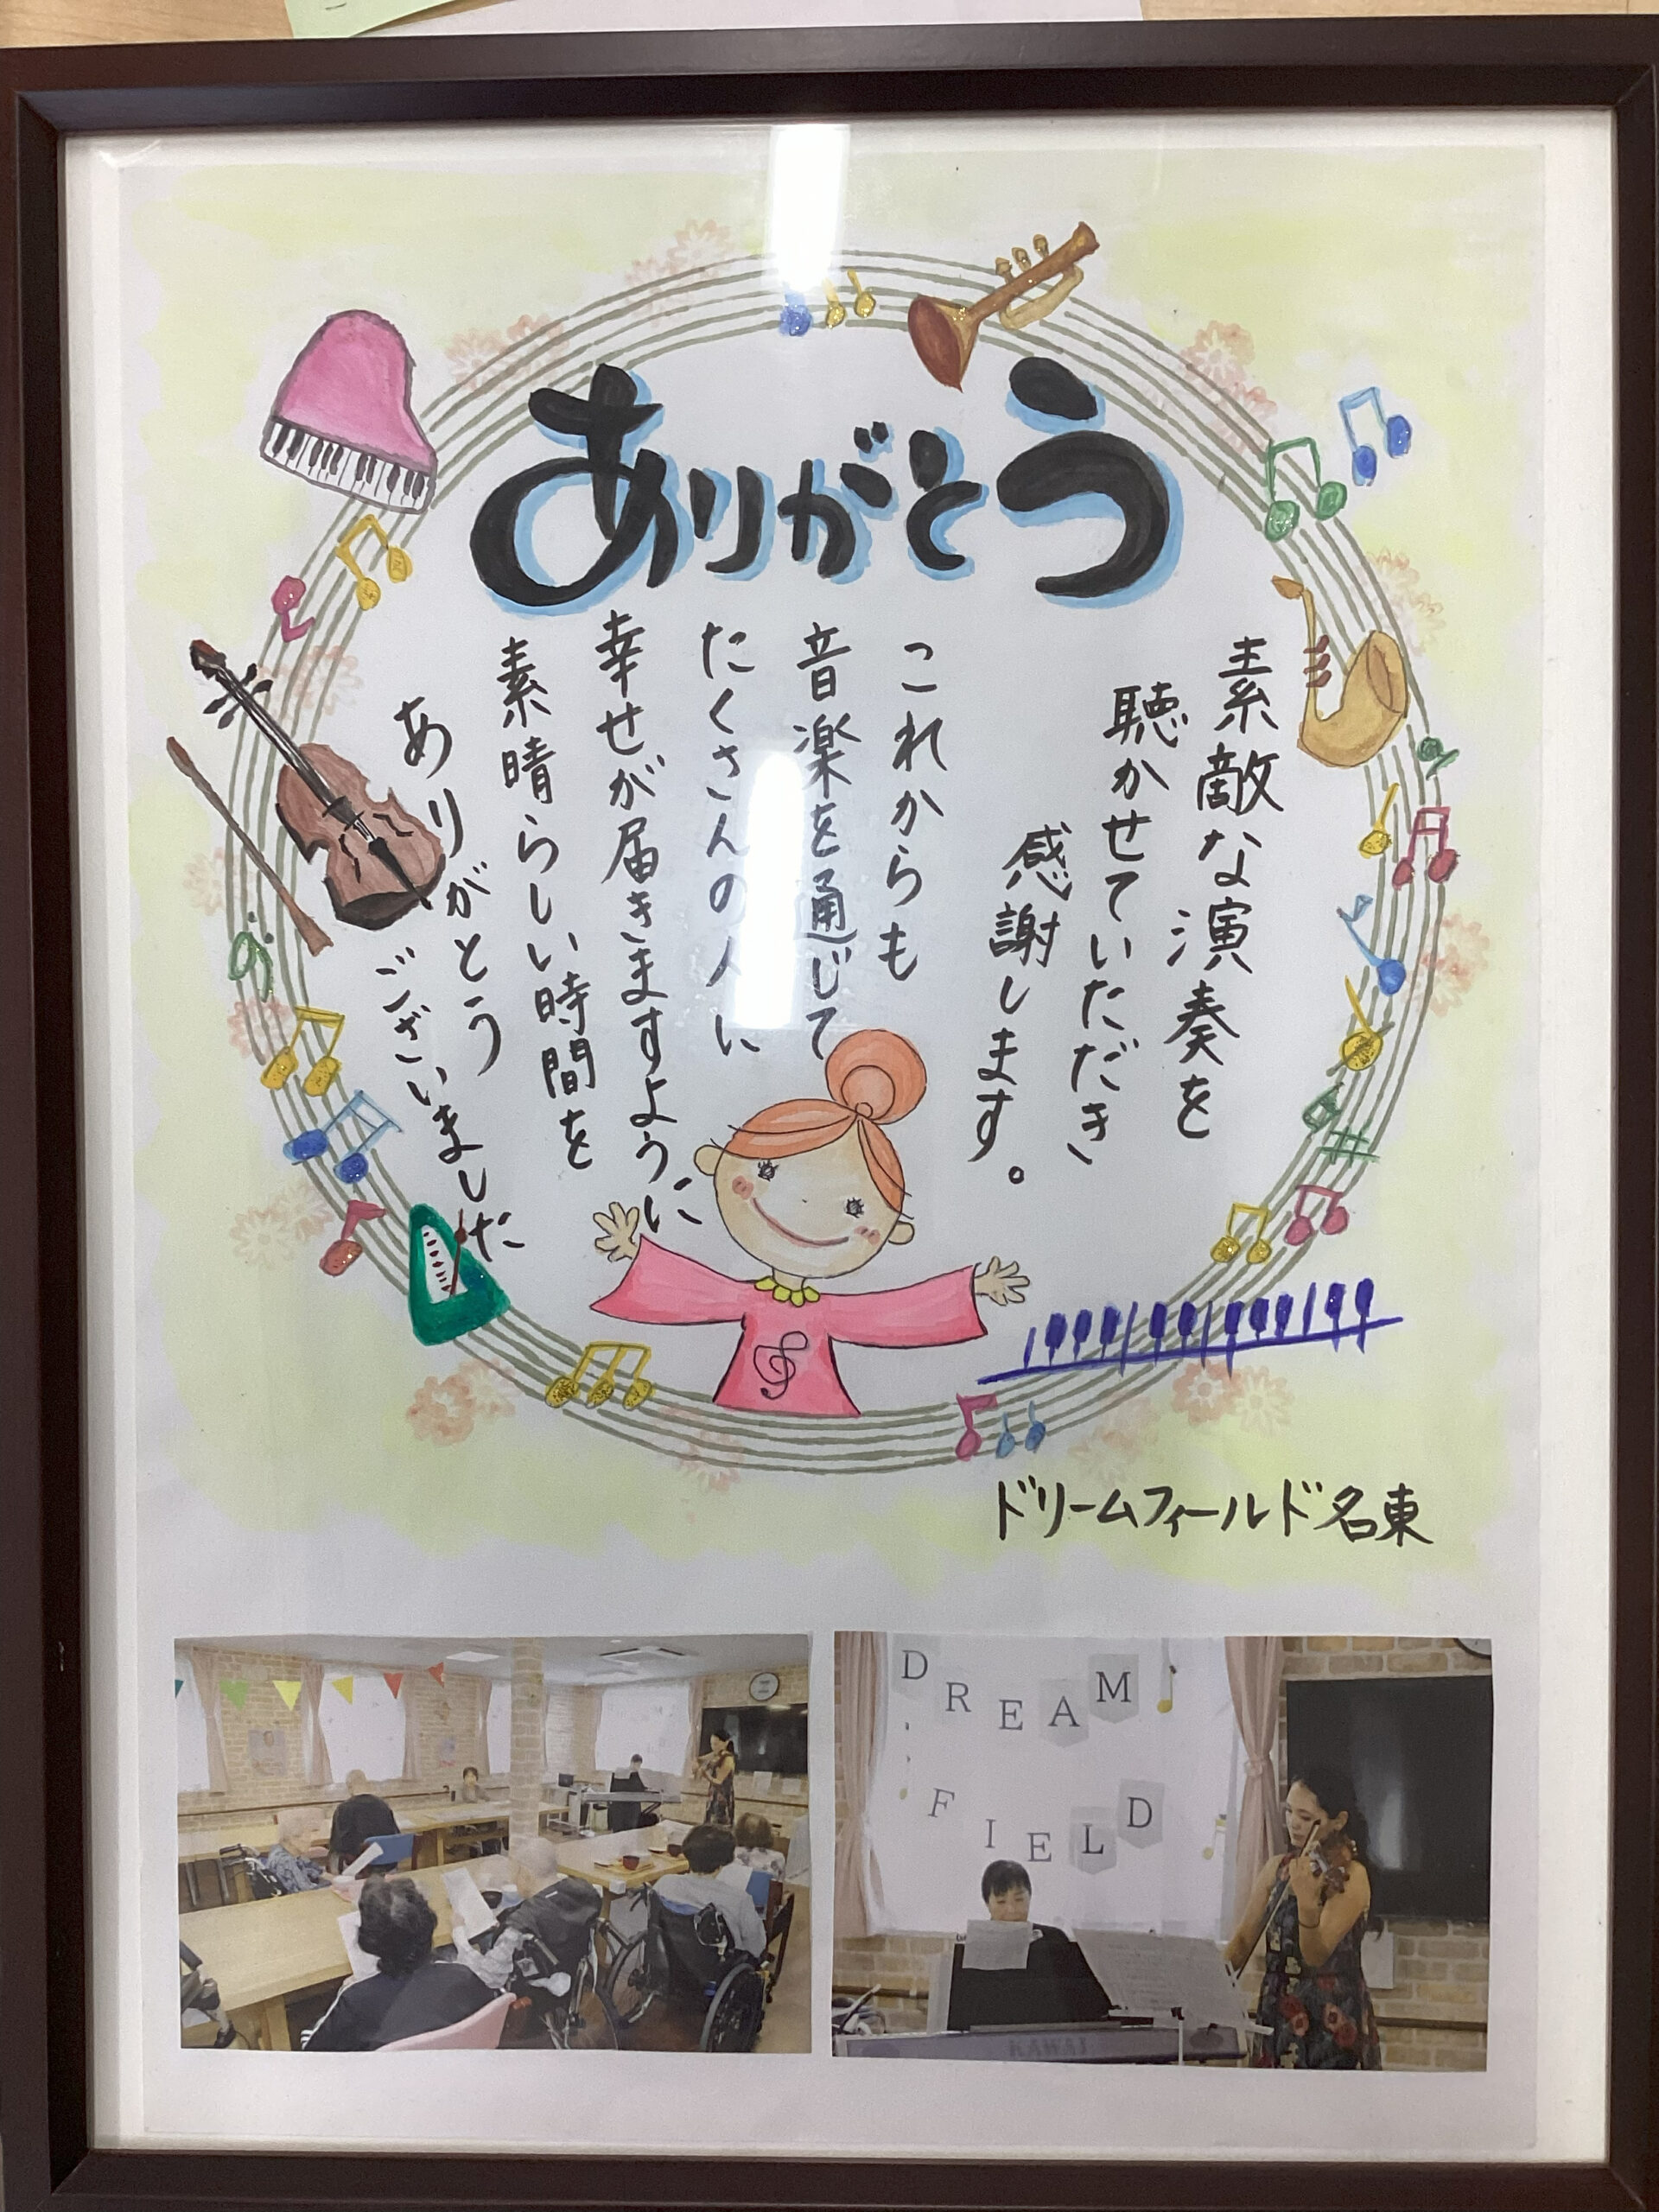 ありがとう
素敵な演奏を
聴かせていただき
感謝します。
これからも
音楽を通じて
たくさんの人に
幸せが届きますように
素晴らしい時間を
ありがとう
ございました
ドリームフィールド名東
DREAM
FIELD
KAWAI